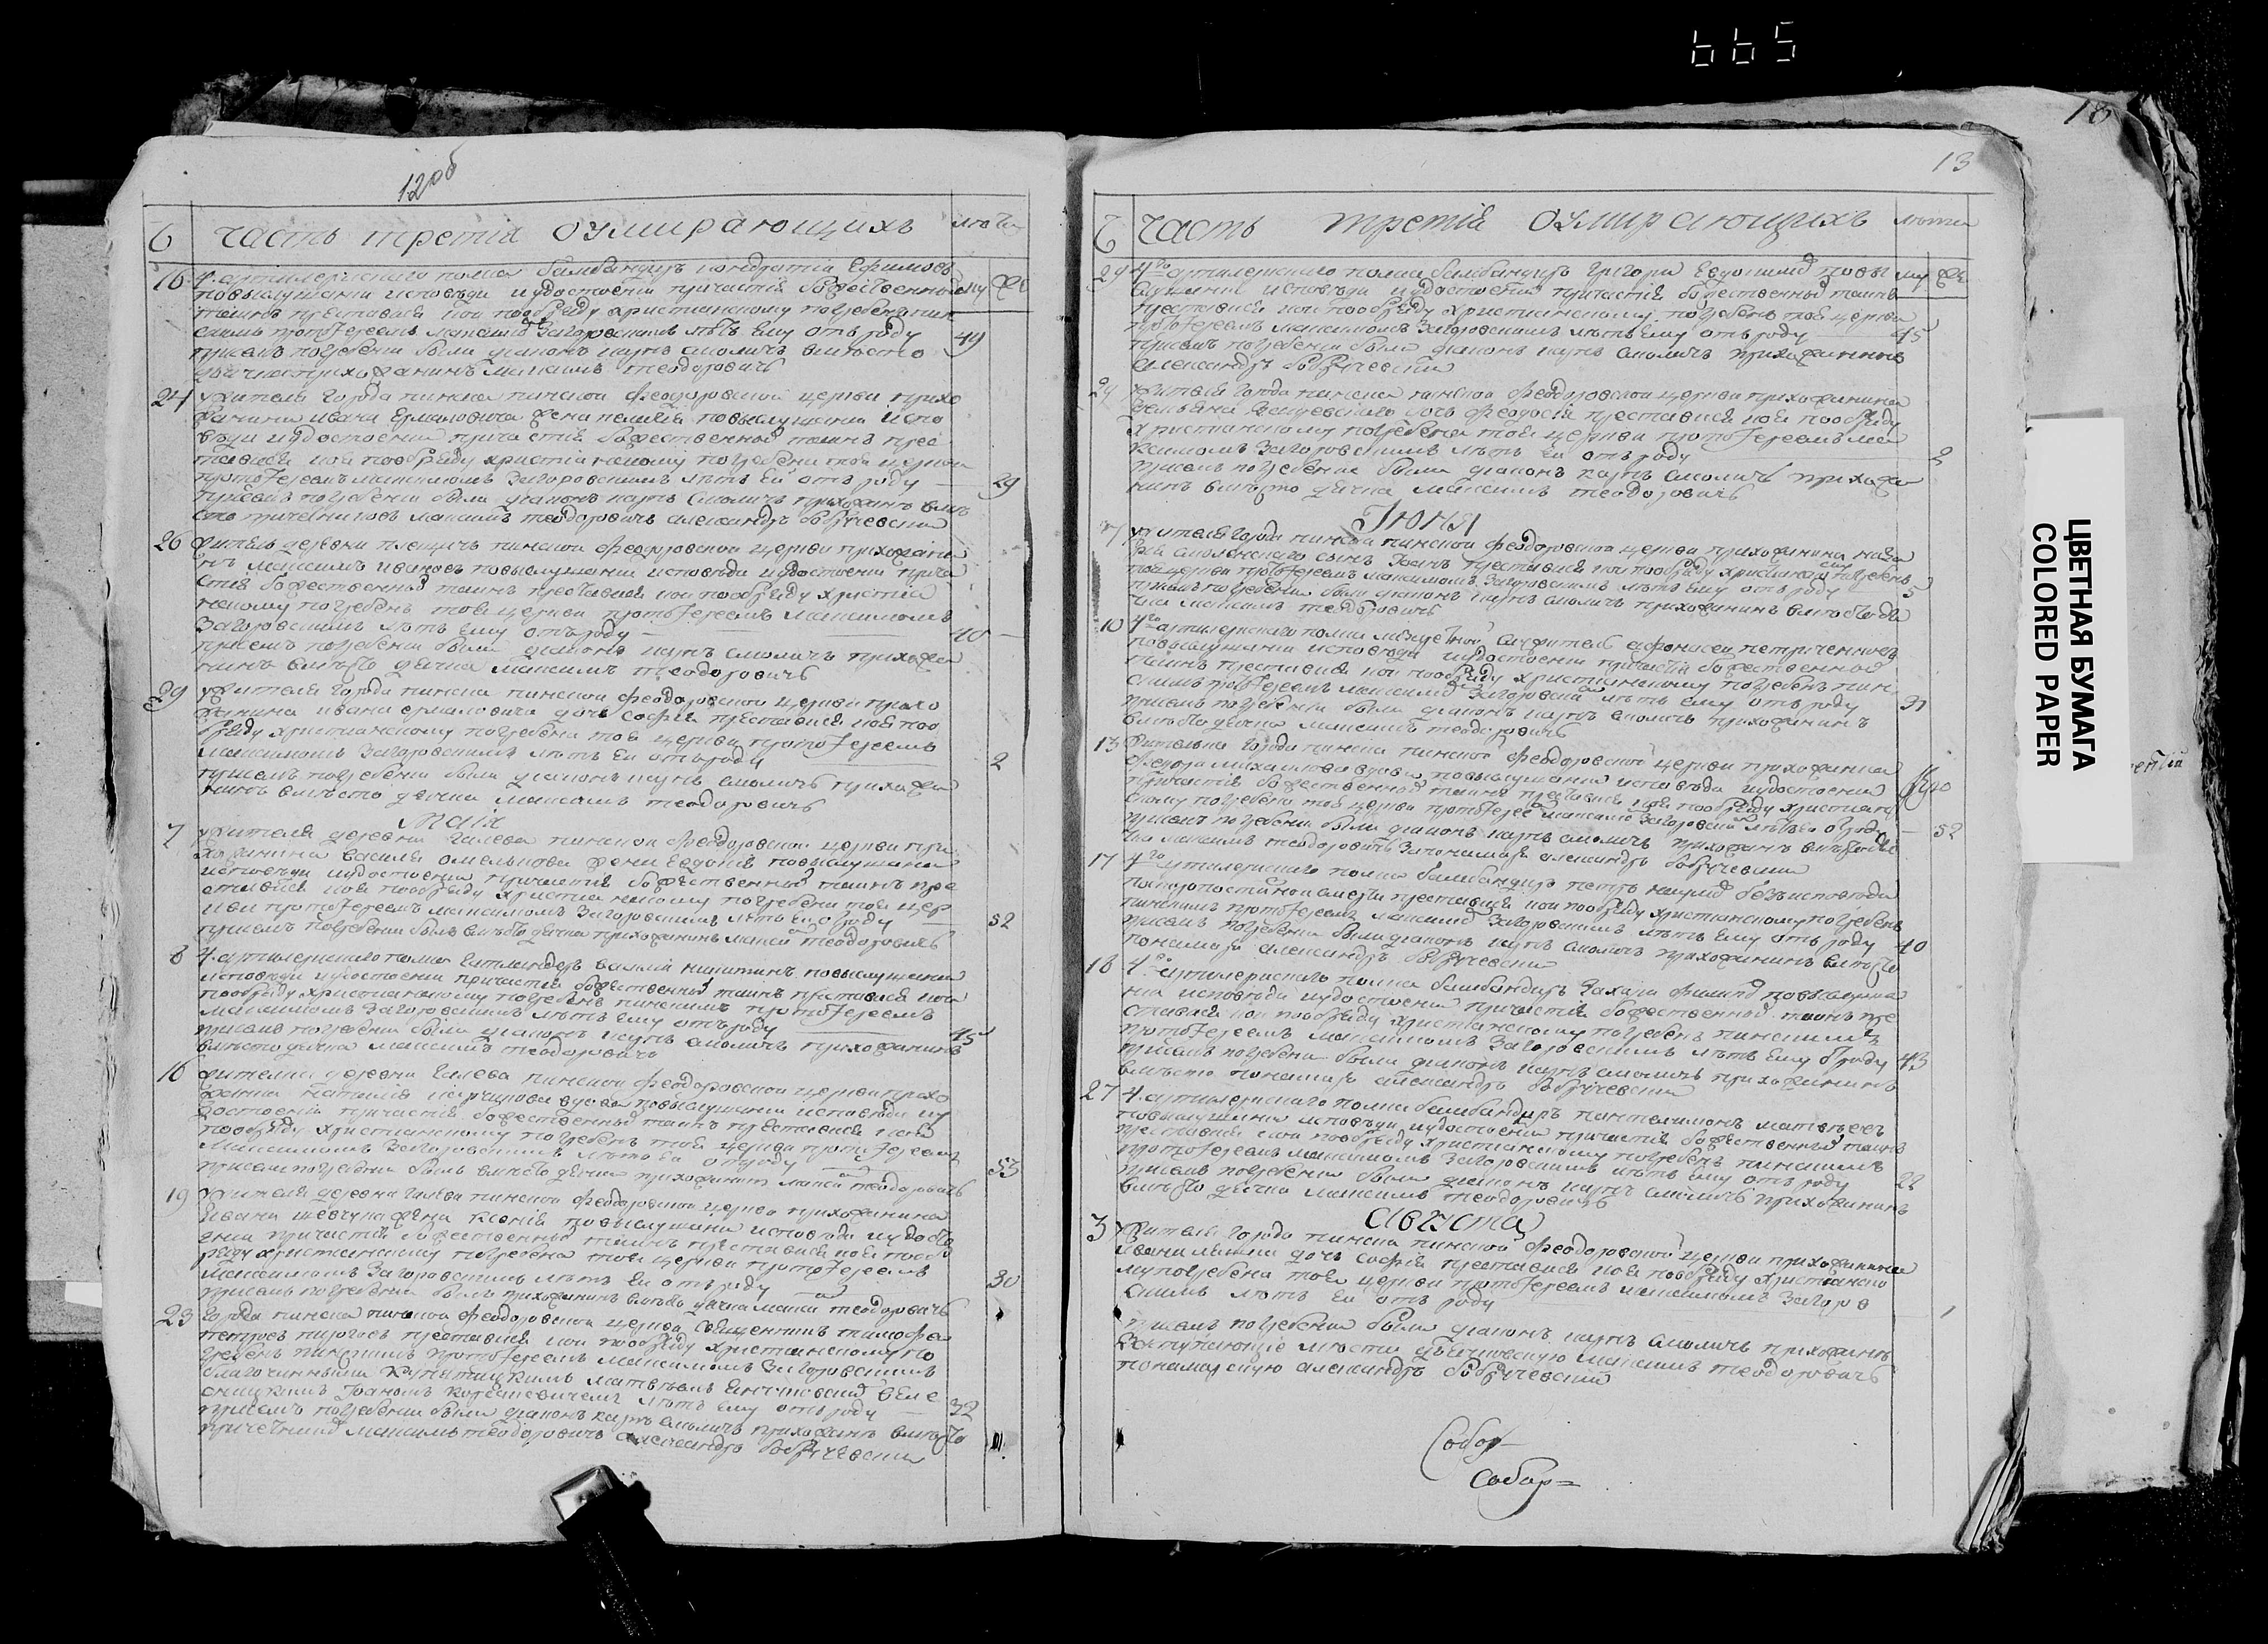 665
18
12об
Часть третія оумирающихъ лѣта
му же
16 4. артилерискаго полка бамбандиръ кондратій Ефимовъ
повыслушаніи исповѣди иудостоеніи причастія божественныхъ
таинъ преставися кои пообряду христианскому погребенъ пин
скимъ протоіереемъ максимомъ Загоровскимъ лѣтъ Ему отъ роду 49
присемъ погребеніи были діаконъ карпъ смоличъ вмѣсто
дьячка прихожанинъ максимъ теодоровичъ
24 жителя города пинска пинской феодоровской церкви прихо
жанина ивана Ермаковича жена повыслушаніи испо
вѣди иудостоеніи причастія божественныхъ таинъ прес
тависѧ коя пообряду христіанскому погребена тоя церкви
протоіереемъ максимомъ Загоровскимъ лѣтъ Ей отъ роду 29
присемъ погребеніи были діаконъ карпъ смоличъ прихожанъ вмѣ
сто причетниковъ максимъ теодоровичъ александръ бобручевски
26 житель деревни пинской феодоровской церкви прихожани
нъ максимъ ивановъ повыслушаніи исповѣди иудостоеніи прича
стія божественныхъ таинъ преставися кои пообряду христиа
нскому погребенъ тоей церкви протоіереемъ максимомъ
Загоровскимъ лѣтъ Ему отъ роду 40
присемъ погребеніи были діаконъ карпъ смоличъ прихожа
нинъ вмѣсто дячка максимъ теодоровичъ
29 жителя города пинска пинской феодоровской церкви прихо
жанина ивана ермаковича дочь софія преставися коя поо
бряду христианскому погребена тоя церкви протоіереемъ
максимомъ Загоровскимъ лѣтъ Ей отъ роду 2
присемъ погребеніи были діаконъ карпъ смоличъ прихожа
нинъ вмѣсто дячка максимъ теодоровичъ
маія
7 жителя деревни Галева пинской феодоровской церкви при
хожанина василія омелянова жена Евдокія повыслушаніи
исповѣди иудостоеніи причастія божественныхъ таинъ пре
ставися коя пообряду христианскому погребена тоя цер
кви протоіереемъ максимомъ Загоровскимъ лѣтъ Ей отроду 52
присемъ погребеніи былъ вмѣсто дячка прихожанинъ максимъ теодоровичъ
8 4. артилерискаго полка василій никитинъ повыслушаніи
исповѣди иудостоеніи причастія божественныхъ таинъ преставися кои
пообряду христианскому погребенъ пинскимъ протоіереемъ
максимомъ Загоровскимъ лѣтъ Ему отъ роду 45
присемъ погребеніи были діаконъ карпъ смоличъ прихожанинъ
вмѣсто дячка максимъ теодоровичъ
16 жителка деревни Галева пинской феодоровской церкви прихо
жанка наталія вдова повыслушаніи исповѣди иу
достоеніи причастія божественныхъ таинъ преставися коя
пообряду христианскому погребенъ тоя церкви протоіереемъ
максимомъ Загоровскимъ лѣтъ Ей отроду 53
присемъ погребеніи былъ вмѣсто дячка прихожанинъ максимъ теодоровичъ
19 жителя деревни Галева пинской феодоровской церкви прихожанина
ивана шевчука жена Ксенія повыслушаніи исповѣди иудосто
еніи причастія божественныхъ таинъ преставися коя пооб
ряду христианскому погребена тоя церкви протоіереемъ
максимомъ Загоровскимъ лѣтъ Ей отъ роду 30
присемъ погребеніи былъ прихожанинъ вмѣсто дячка максимъ теодоровичъ
23 Города пинска пинской феодоровской церкви священникъ тимофей
петровъ преставися кои пообряду христианскому по
гребенъ пинскимъ протоіереемъ максимомъ Загоровскимъ
благочиннымъ
Іоаномъ лѣтъ Ему отъ роду 32
присемъ погребеніи были діаконъ карпъ смоличъ прихожанъ вмѣсто
причетниковъ максимъ теодоровичъ александръ бобручевски
13
Часть третія оумирающихъ лѣта
му же
29 4го артилерискаго полка бамбандиръ Григорій Евдокимовъ повы
слушаніи исповѣди иудостоеніи причастія божественныхъ таинъ
преставися кои пообряду христианскому погребенъ тоя церкви
протоіереемъ максимомъ Загоровскимъ лѣтъ Ему отъ роду 45
присемъ погребеніи были діаконъ карпъ смоличъ прихожанинъ
александръ бобручевски
29 жителя города пинска пинской феодоровской церкви прихожанина
дочь феодосія преставися коя пообряду
христианскому погребена тоя церкви протоіереемъ ма
ксимомъ Загоровскимъ лѣтъ Ей отъ роду 2
присемъ погребеніи были діаконъ карпъ смоличъ прихожа
нинъ вмѣсто дячка максимъ теодоровичъ
Іюня
7 жителя города пинска пинской феодоровской церкви прихожанина
сынъ Іоанъ преставися кои пообряду христианскому погребенъ
тоя церкви протоіереемъ максимомъ Загоровскимъ лѣтъ Ему отъ роду 5
присемъ погребеніи были діаконъ карпъ смоличъ прихожанинъ вмѣсто дя
чка максимъ теодоровичъ
10 4го артилерискаго полка афанасей
повыслушаніи исповѣди иудостоеніи причастія божественныхъ
таинъ преставися кои пообряду христианскому погребенъ пин
скимъ протоіереемъ максимомъ Загоровскимъ лѣтъ Ему отъ роду 31
присемъ погребеніи были діаконъ карпъ смоличъ прихожанинъ
вмѣсто дячка максимъ теодоровичъ
13 жителка города пинска пинской феодоровской церкви прихожанка
михайлова вдова повыслушаніи исповѣди иудостоеніи
причастія божественныхъ таинъ преставися коя пообряду христиан
скому погребена тоя церкви протоіереемъ максимомъ Загоровскимъ лѣтъ Ей отроду 52
присемъ погребеніи были діаконъ карпъ смоличъ прихожанъ вмѣсто дя
чка максимъ теодоровичъ Запонамаря александръ бобручевски
17 4го артилерискаго полка бамбандиръ петръ наумовъ безъ исповѣди
преставися кои пообряду христианскому погребенъ
пинскимъ протоіереемъ максимомъ Загоровскимъ лѣтъ Ему отъ роду 40
присемъ погребеніи были діаконъ карпъ смоличъ прихожанинъ вмѣсто
понамаря александръ бобручевски
18 4го артилерискаго полка бамбандиръ Захарій повыслуша
ніи исповѣди иудостоеніи причастія божественныхъ таинъ пре
ставися кои пообряду христианскому погребенъ пинскимъ
протоіереемъ максимомъ Загоровскимъ лѣтъ Ему отроду 43
присемъ погребеніи были діаконъ карпъ смоличъ прихожанинъ
вмѣсто понамаря александръ бобручевски
27 4. артилерискаго полка бамбандиръ пантелимонъ матвѣевъ
повыслушаніи исповѣди иудостоеніи причастія божественныхъ таинъ
преставися кои пообряду христианскому погребенъ пинскимъ
протоіереемъ максимомъ Загоровскимъ лѣтъ Ему отъ роду 22
присемъ погребеніи были діаконъ карпъ смоличъ прихожанинъ
вмѣсто дячка максимъ теодоровичъ
Августа
3 жителя города пинска пинской феодоровской церкви прихожанина
ивана дочь софія преставися коя пообряду христианско
му погребена тоя церкви протоіереемъ максимомъ Загоров
скимъ лѣтъ Ей отъ роду 1
присемъ погребеніи были діаконъ карпъ смоличъ прихожанъ
Заступающіе мѣсто дьячковскую максимъ теодоровичъ
понамарскую александръ бобручевскій
Собор
Собор=
ЦВЕТНАЯ БУМАГА
COLORED PAPER